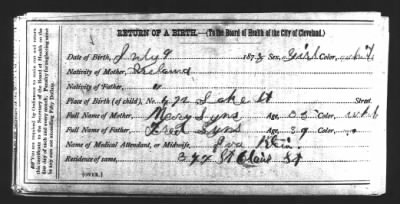 RETURN OF A BIRTH.—(To the Board of Health of the City of Cleveland.)
Date of Birth, July 9 1873 Sex, Girl Color, white
Nativity of Mother, Ireland
Nativity of Father, "
Place of Birth (of child), No. Lake St Street
Full Name of Mother Mary Lyns Age, 35 Color, wht
Full Name of Father Fred Lyns Age, 39 Color, "
Name of Medical Attendant, or Midwife,
Residence of same, 344 St Clair St
(OVER.)